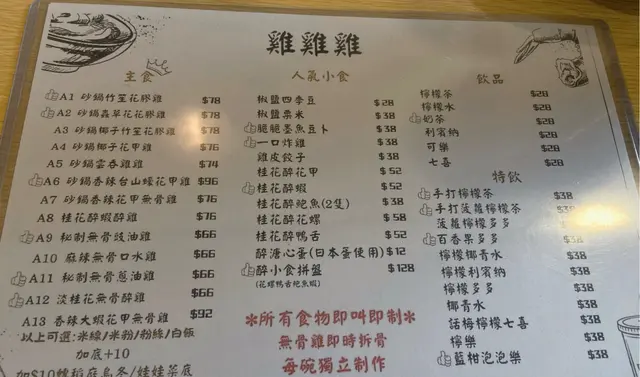 雞雞雞
主食
A1 砂鍋竹笙花膠雞 $78
A2 砂鍋蟲草花花膠雞 $78
A3 砂鍋椰子竹笙花膠雞 $78
A4 砂鍋椰子花甲雞 $76
A5 砂鍋雲吞雞雞 $74
A6 砂鍋香辣台山蠔花甲雞 $96
A7 砂鍋香辣花甲無骨雞 $76
A8 桂花醉蝦醉雞 $76
A9 秘制無骨豉油雞 $66
A10 麻辣無骨口水雞 $66
A11 秘制無骨蔥油雞 $66
A12 淡桂花無骨醉雞 $66
A13 香辣大蝦花甲無骨雞 $92
以上可選:米線/米粉/粉絲/白飯
加底+10
加$10轉稻庭烏冬/娃娃菜底
人氣小食
椒鹽四季豆 $28
椒鹽粟米 $38
脆脆墨魚豆卜 $38
一口炸雞 $38
雞皮餃子 $38
桂花醉花甲 $52
桂花醉蝦 $52
桂花醉鮑魚(2隻) $38
桂花醉花螺 $58
桂花醉鴨舌 $52
醉溏心蛋(日本蛋使用) $12
醉小食拼盤 $128
(花螺鴨舌鮑魚蝦)
*所有食物即叫即制*
無骨雞即時拆骨
每碗獨立制作
飲品
檸檬茶 $28
檸檬水 $28
奶茶 $28
利賓納 $28
可樂 $28
七喜 $28
特飲
手打檸檬茶 $38
手打菠蘿檸檬茶 $38
菠蘿檸檬茶 $38
百香果多多 $38
檸檬椰青水 $38
檸檬利賓納 $38
檸檬多多 $38
椰青水 $38
話梅檸檬七喜 $38
檸樂 $38
藍柑泡泡樂 $38